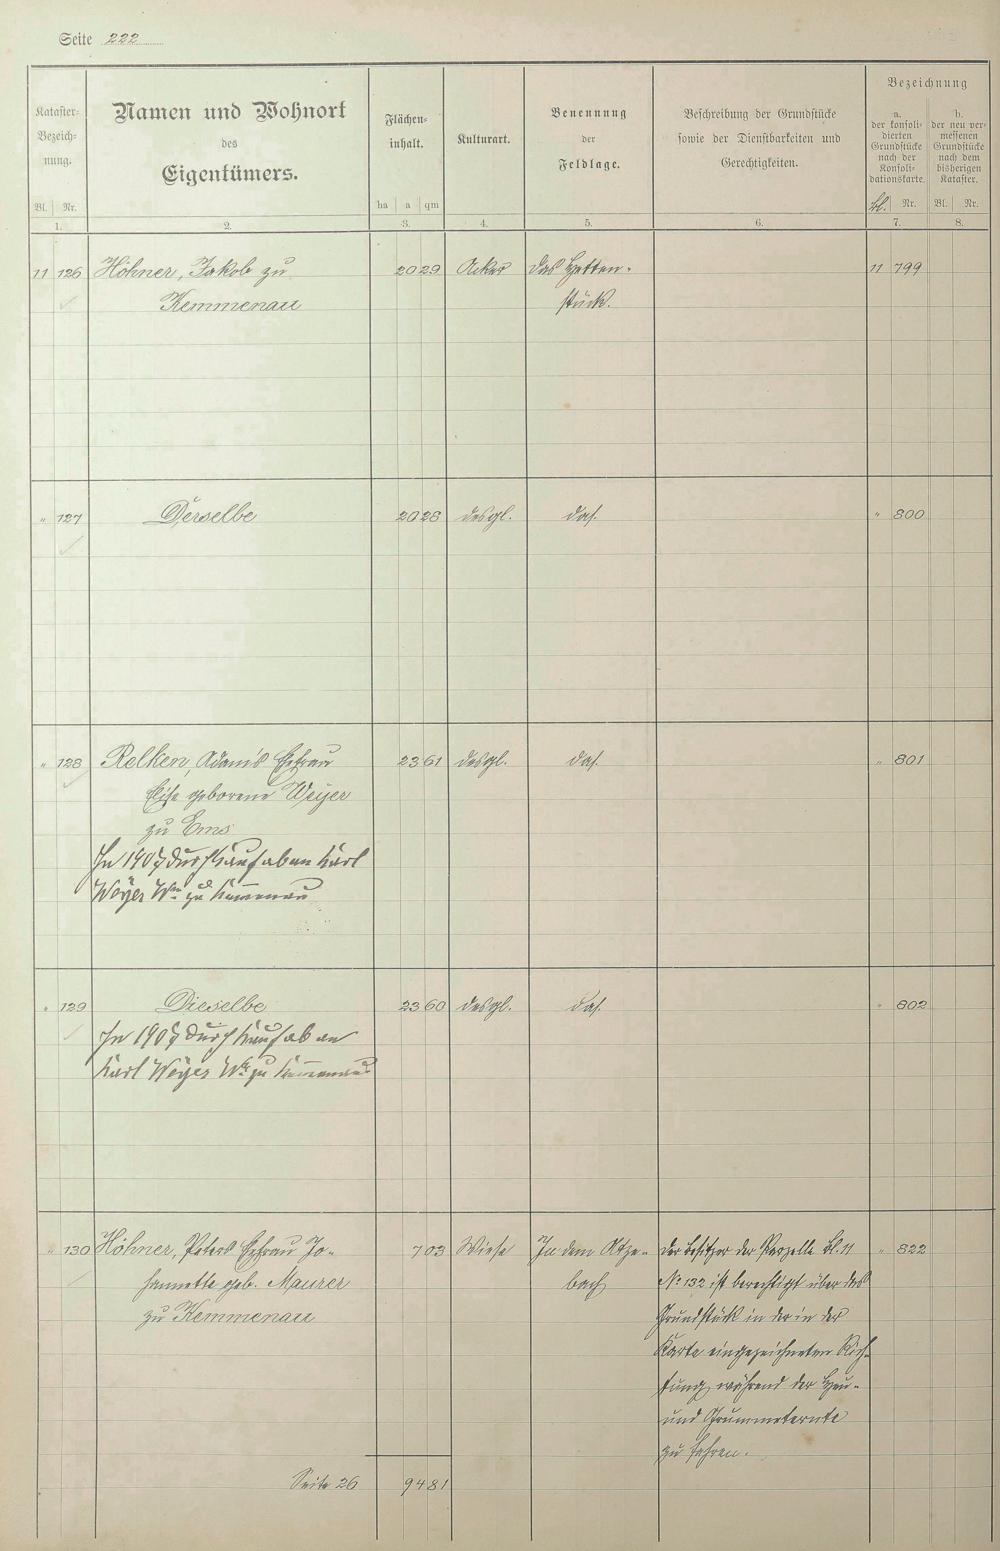 Seite 222
Kataster-
Bezeich-
nung.
Bl. Nr.
1.
Namen und Wohnort
des
Eigentümers.
2.
Flächen-
inhalt.
ha a qm
3.
Kulturart.
4.
Benennung
der
Feldlage.
5.
Beschreibung der Grundstücke
sowie der Dienstbarkeiten und
Gerechtigkeiten.
6.
Bezeichnung
a.
der konsoli-
dierten
Grundstücke
nach der
Konsoli-
dationskarte.
Bl. Nr.
7.
b.
der neu ver-
messenen
Grundstücke
nach dem
bisherigen
Kataster.
Bl. Nr.
8.
11 126 Höhner, Jakob zu 20 29 Acker Das 11 799
Kemmenau stück.
" 127 Derselbe 20 28 desgl. das. " 800
" 128 Relken, Adam's Ehefrau 23 61 desgl. das. " 801
Elise geborene Weyer
zu Ems
In 1907 durch Kauf ab an Karl
Weyer Ww. zu Kemmenau
" 129 Dieselbe 23 60 desgl. das. " 802
In 1907 durch Kauf ab an
Karl Weyer Ww. zu Kemmenau
" 130 Höhner, Peters Ehefrau Jo- 7 03 Wiese In dem Atze- Der Besitzer der Parzelle Bl. 11 " 822
hannette geb. Maurer bach No 132 ist berechtigt über das
zu Kemmenau Grundstück in der in der
Karte eingezeichneten Rich-
tung während der Heu-
und Grummeternte
zu fahren.
Seite 26 94 81